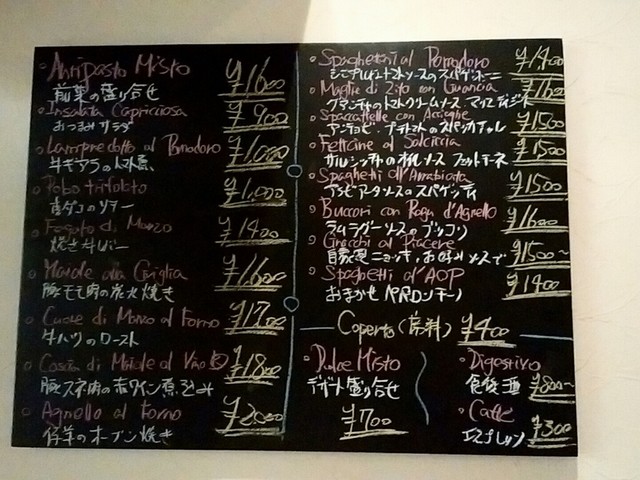 Antipasto Misto ¥1600
前菜の盛り合せ
Insalata Capricciosa ¥900
おつまみサラダ
Lampredotto al Pomodoro ¥1,000
牛ギアラのトマト煮
Polpo trifolato ¥1,000
Fegato di Manzo ¥1400
焼き牛レバー
Maiale alla Griglia ¥1,600
豚モモ肉の炭火焼き
Cuore di Manzo al Forno
牛ハツのロースト
Coscia di Maiale al Vino ¥1800
豚スネ肉の赤ワイン煮込み
Agnello al Forno ¥2,000
仔羊のオーブン焼き
Spaghettini al Pomodoro ¥1400
シンプルなトマトソースのスパゲッティーニ
Maglie di Zito con Guancia ¥1600
グアンチャのトマトクリームソース
Spaccatelle con Acciughe ¥1500
アンチョビ・プチトマトのスパッカテッレ
Fettcine al Salciccia ¥1500
サルシッチャの ソース フェットチーネ
Spaghetti all'Arrabiata ¥1500
アラビアータソースのスパゲッティ
Buccori con Ragu d'Agnello ¥1600
ラムラグーソースのブッコリ
Gnocchi al Piacere ¥1500~
自家製ニョッキ・お好みソースで
Spaghetti al'AOP ¥1400
おまかせペペロンチーノ
Coperto(席料) ¥400
Dolce Misto
デザート盛り合せ
¥700
Digestivo
食後酒 ¥800~
Caffè
エスプレッソ ¥300